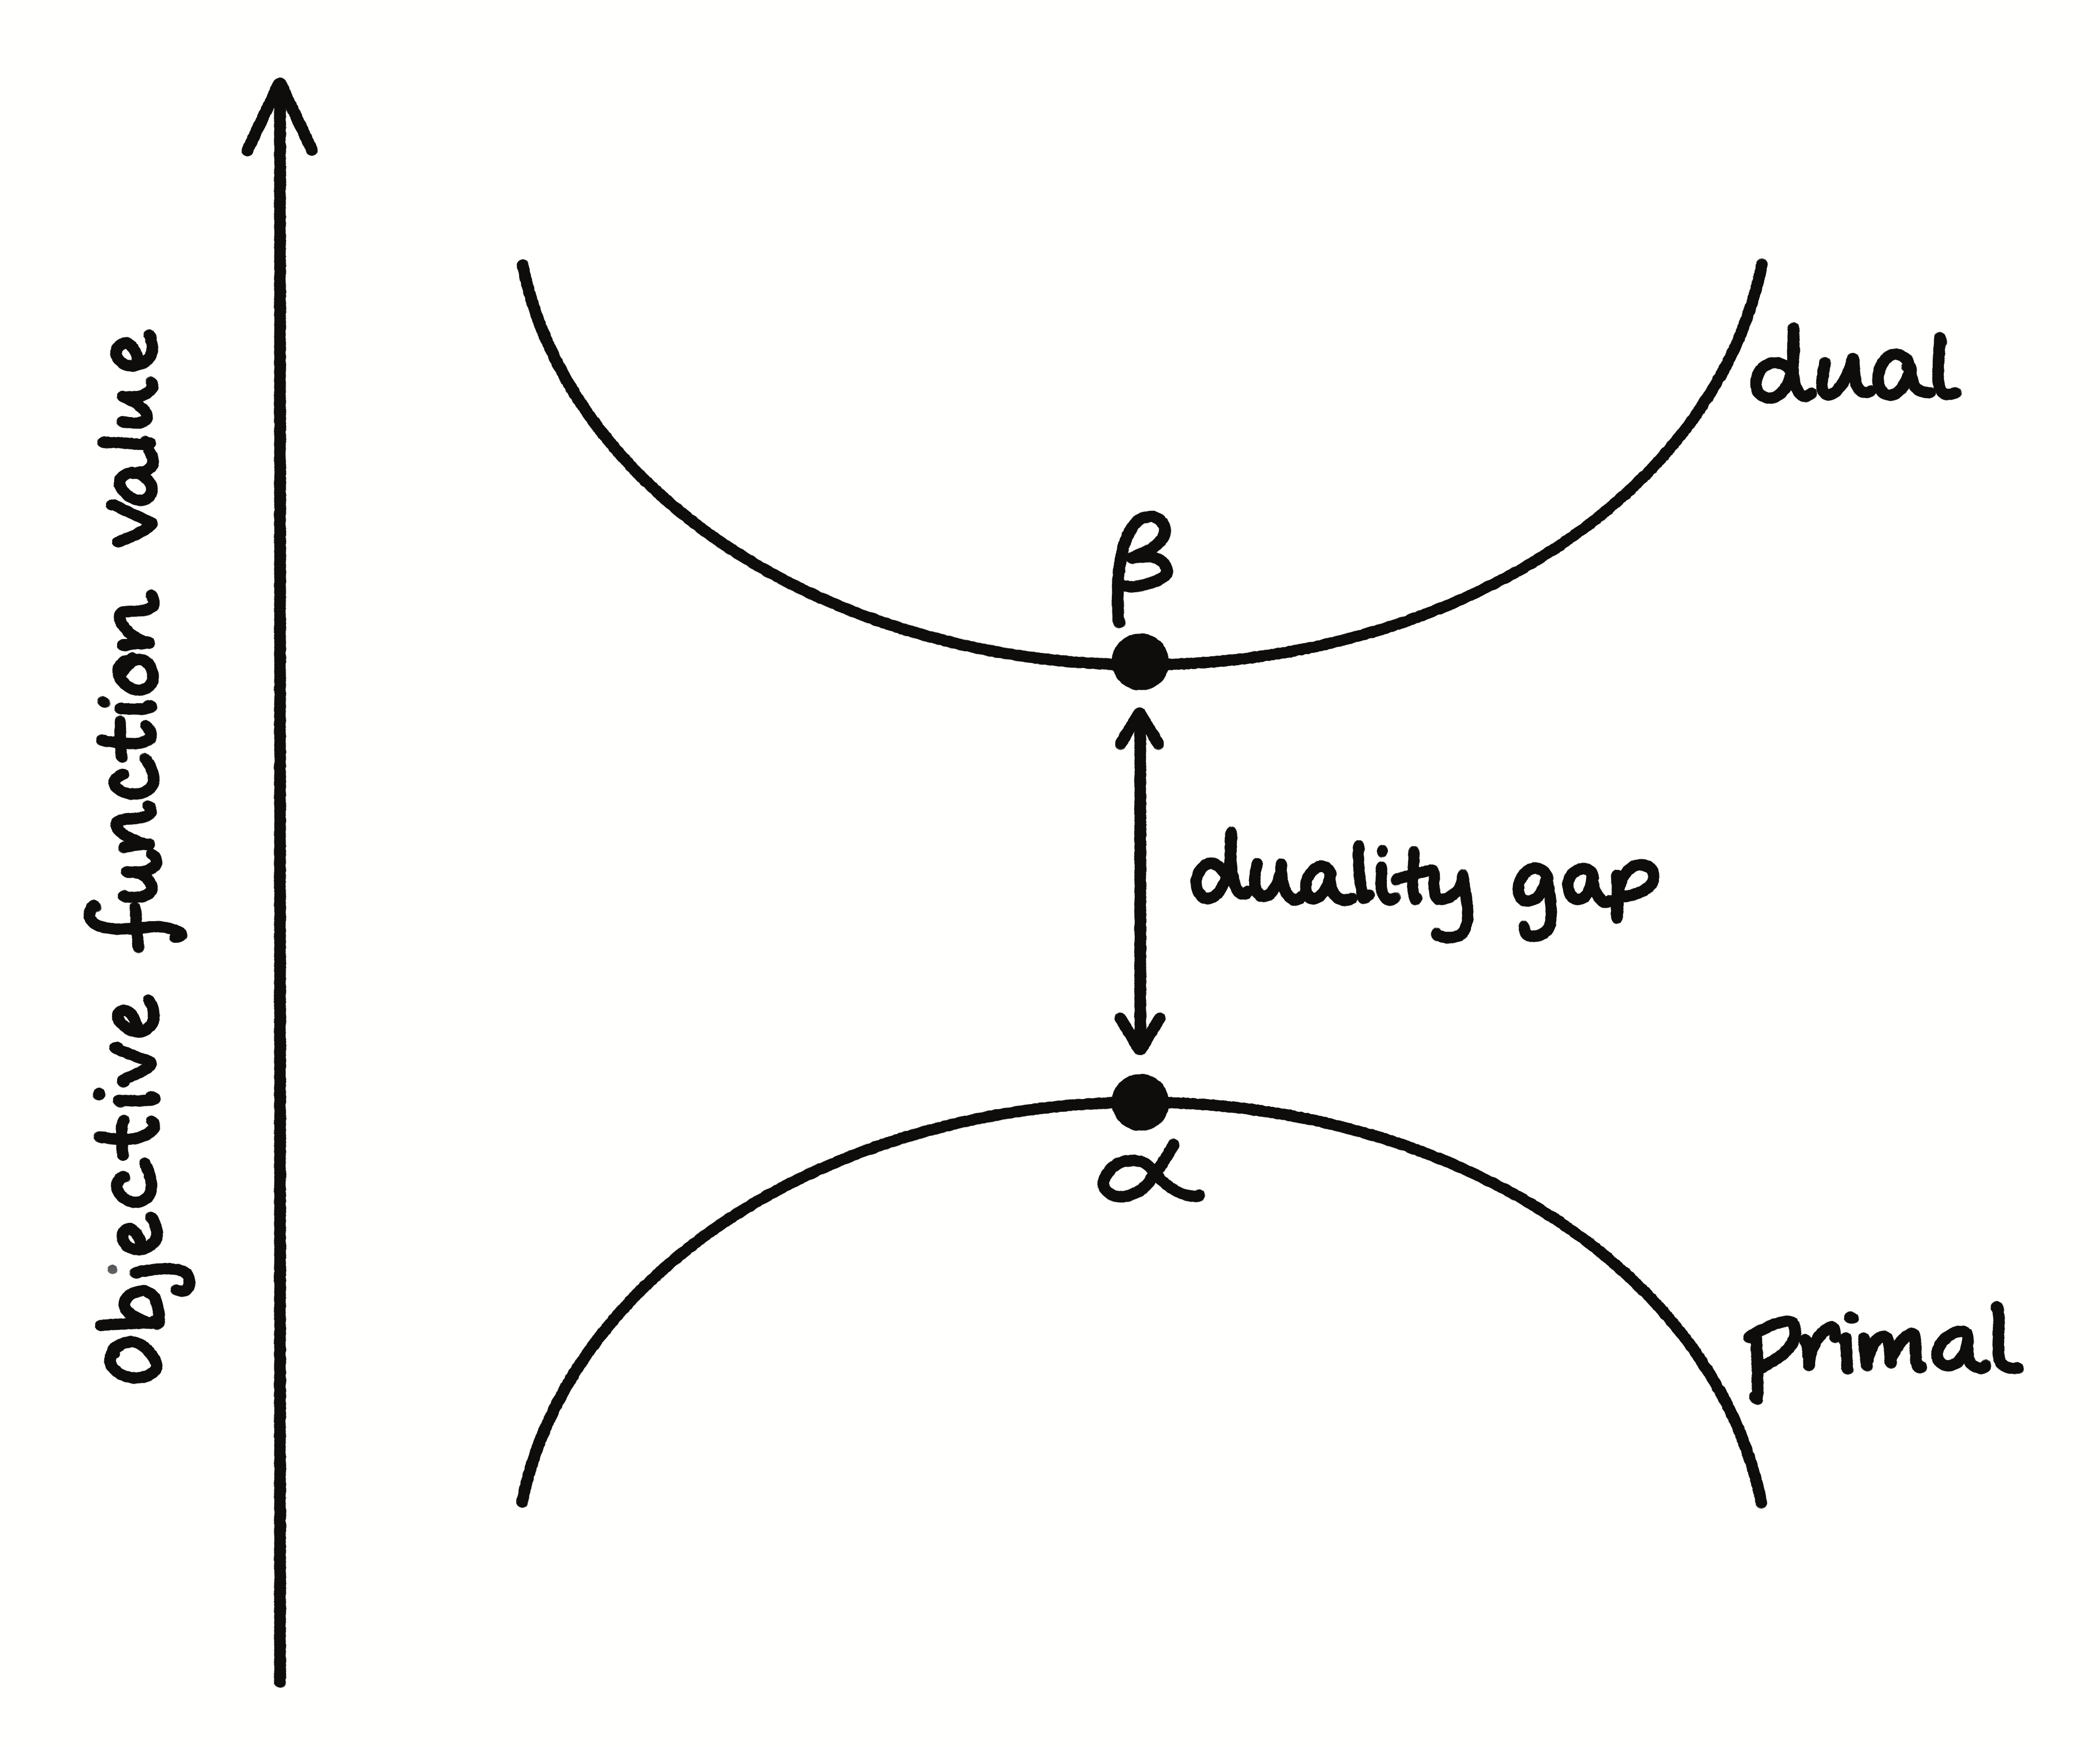 Objective function value
dual
β
duality gap
α
primal